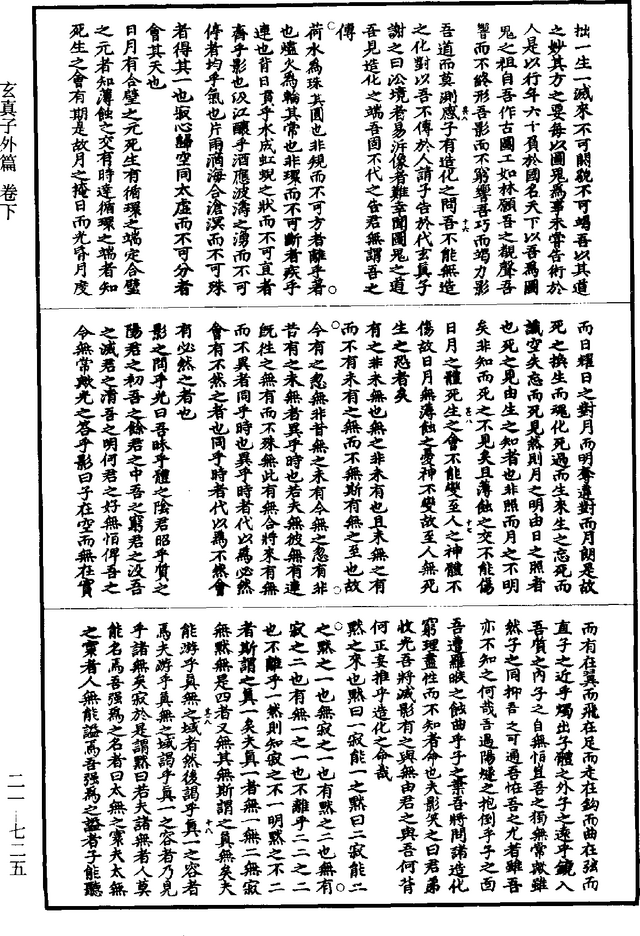 拙一生一滅來不可關貌不可竭吾以其道
之妙其方之要每以圖鬼為事未嘗告術於
人是以行年六十負於國名天下以吾為圖
鬼之祖自吾作古圖工如林願吾之觀聲吾
響而不終形吾影而不窮響吾巧而竭力影
吾道而莫測感子有造化之問吾不能無造
之化對以吾不傳於人請子告於代玄真子
謝之曰泓境者易泝像者難幸聞圖鬼之道
吾見造化之端吾固不代之告君無謂吾之
傳
荷水為珠其圓也非規而不可方者離乎著
也爐火為輪其常也非環而不可斷者疾乎
連也背日噴乎水成虹蜺之狀而不可直者
齊乎影也伋江釀乎酒應波濤之湧而不可
停者均乎氣也片雨滴海合滄溟而不可殊
者得其一也寂心歸空同太虛而不可分者
會其天也
日月有合璧之元死生有循環之端定合璧
之元者知薄蝕之交有時達循環之端者知
死生之會有期是故月之掩日而光昏月度
而日耀日之對月而明奪違對而月朗是故
死之換生而魂化死過而生來生之忘死而
識空失忘而死見然則月之明由日之照者
也死之見由生之知者也非照而月之不明
矣非知而死之不見矣且薄蝕之交不能傷
日月之體死生之會不能變至人之神體不
傷故日月無薄蝕之憂神不變故至人無死
生之恐者矣
有之非未無也無之非未有也且未無之有
而不有未有之無而不無斯有無之至也故
今有之忽無非昔無之未有今無之忽有非
昔有之未無者異乎時也若夫無彼無有連
旣往之無有而不殊無此有無合將來有無
而不異者同乎時也異乎時者代以為必然
會有不然之者也同乎時者代以為不然會
有必然之者也
影之問乎光曰吾昧乎體之陰君昭乎質之
陽君之初吾之餘君之中吾之窮君之沒吾
之滅君之清吾之明何君之好無恒俾吾之
令無常歟光之答乎影曰子在空而無在實
而有在翼而飛在足而走在鈎而曲在弦而
直子之近乎燭出子體之外子之遠乎鏡入
吾質之內子之自無恒豈吾之獨無常歟雖
然子之同抑吾之可通吾怪吾之尤者雖吾
亦不知之何哉吾過陽燧之抱倒乎子之面
吾遭羅睺之蝕曲乎子之葉吾將問諸造化
窮理盡性而不知者命也夫影笑之曰君弟
收光吾將滅影有之與無由君之與吾何背
何正妄推乎造化之命哉
默之來也默曰一寂能一之默曰二寂能二
之默之一也無寂之一也有默之二也無有
寂之二也有無一之一也不離乎二二之二
也不離乎一然則知寂之不一明默之不二
者斯謂之真一矣夫真一者無一無二無寂
無默無是四者又無其無斯謂之真無矣夫
能游乎真無之域者然後謁乎真一之容者
焉夫游乎真無之域謁乎真一之容者乃見
乎諸無矣寂於是謂默曰若夫諸無者人莫
能名焉吾強為之名者曰太無之寞夫太無
之寞者人無能謚焉吾強為之謚者子能聽
玄真子外篇 卷下
二一—七二五